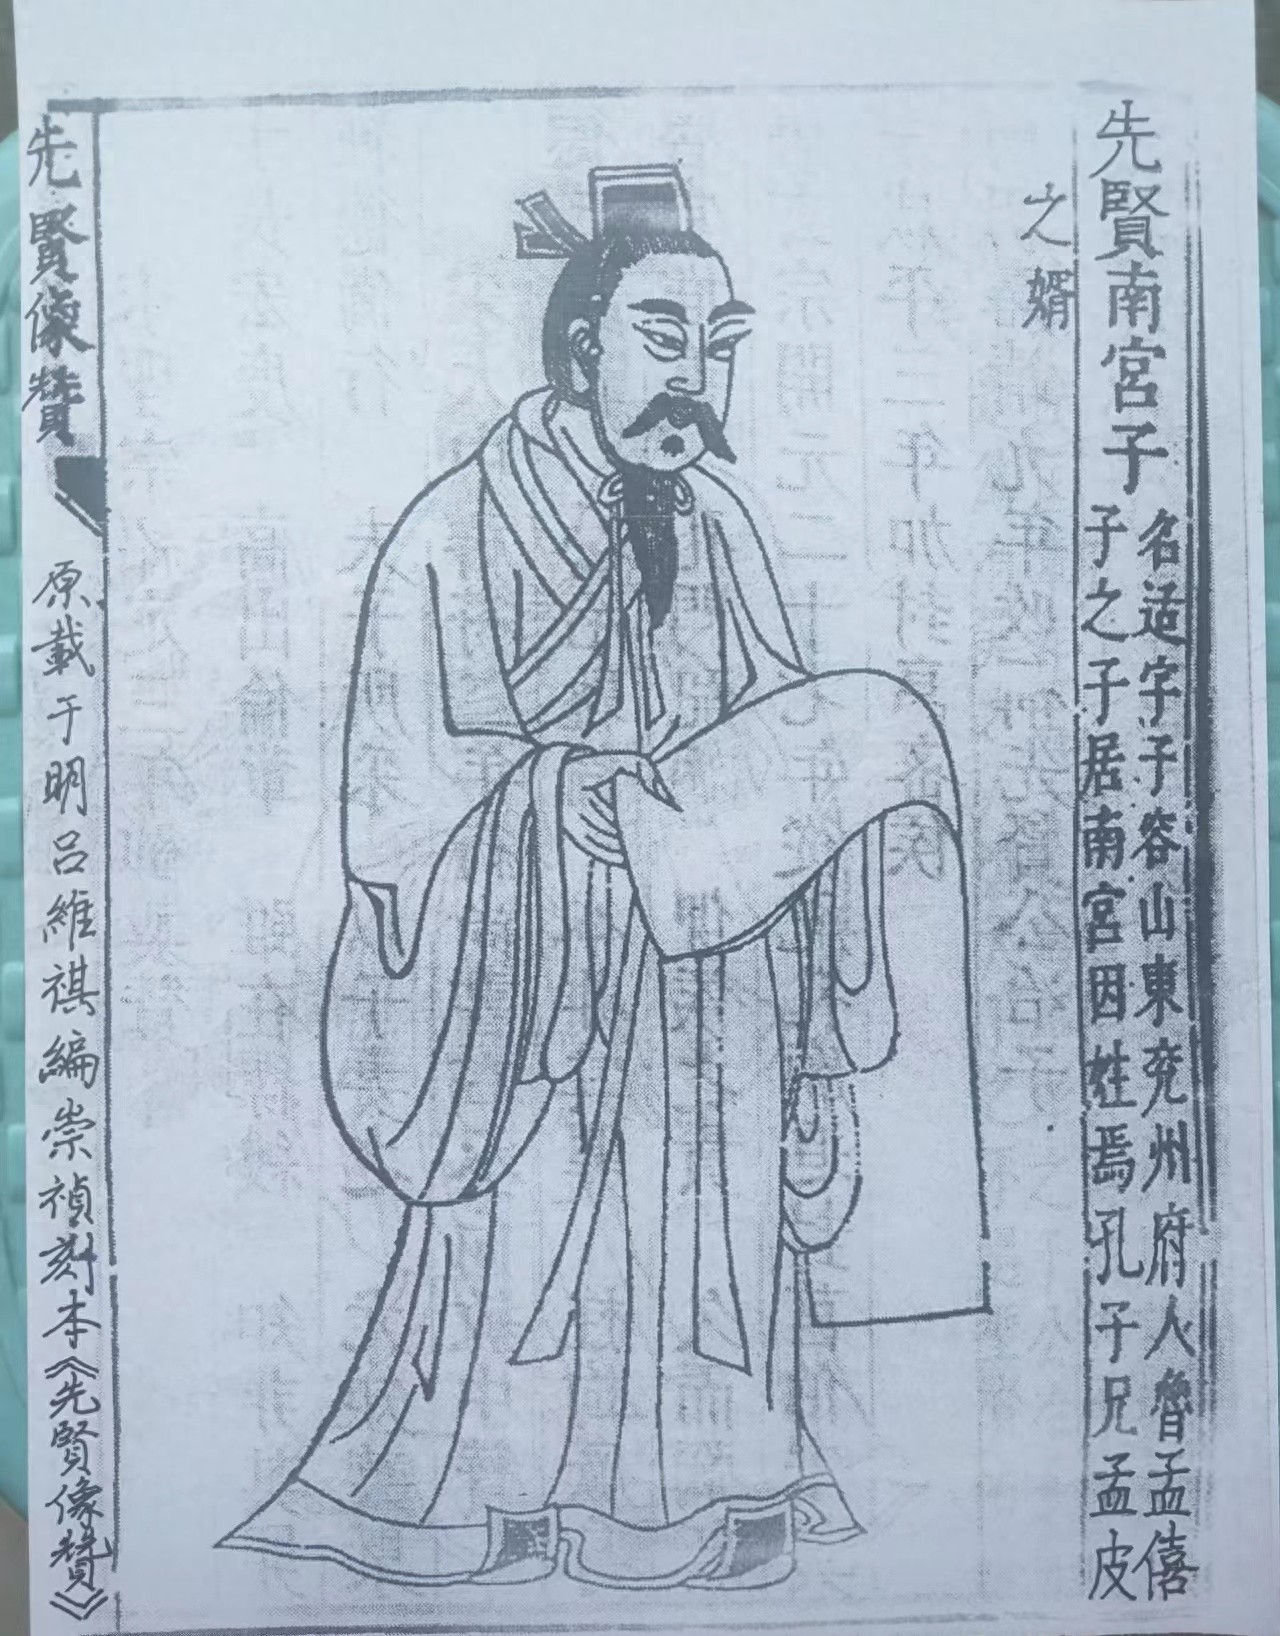 先賢南宮子
名适字子容山東兖州府人魯孟僖
子之子居南宮因姓焉孔子兄孟皮
之婿
先賢像贊
原載于明呂維祺編崇禎刻本《先賢像贊》